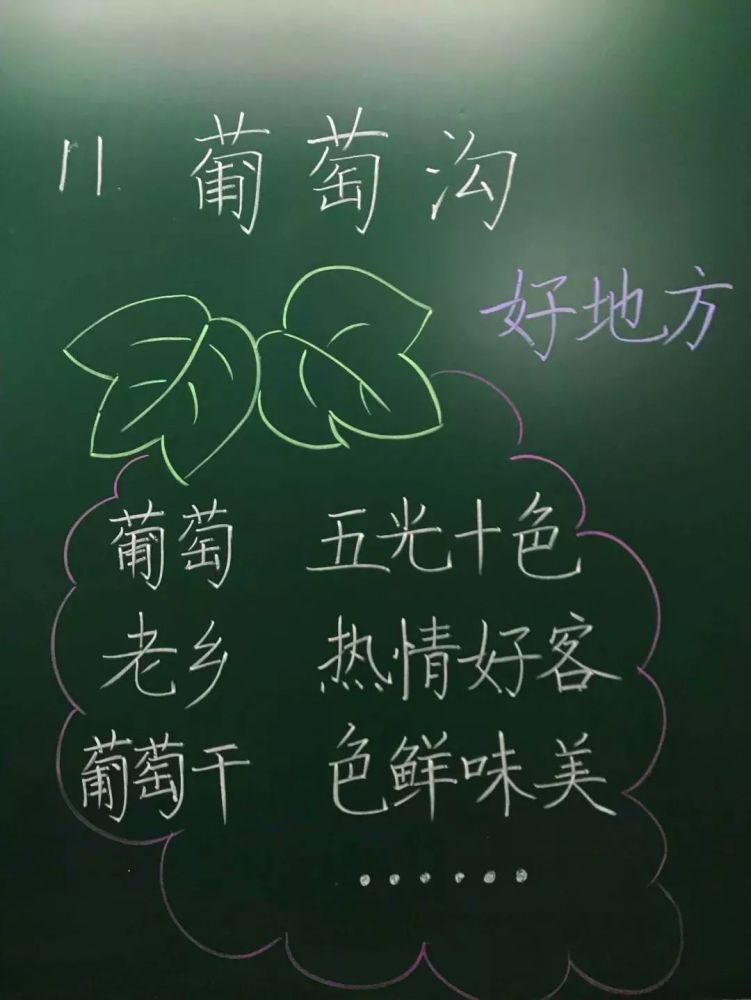 11. 葡萄沟
好地方
葡萄 五光十色
老乡 热情好客
葡萄干 色鲜味美
······